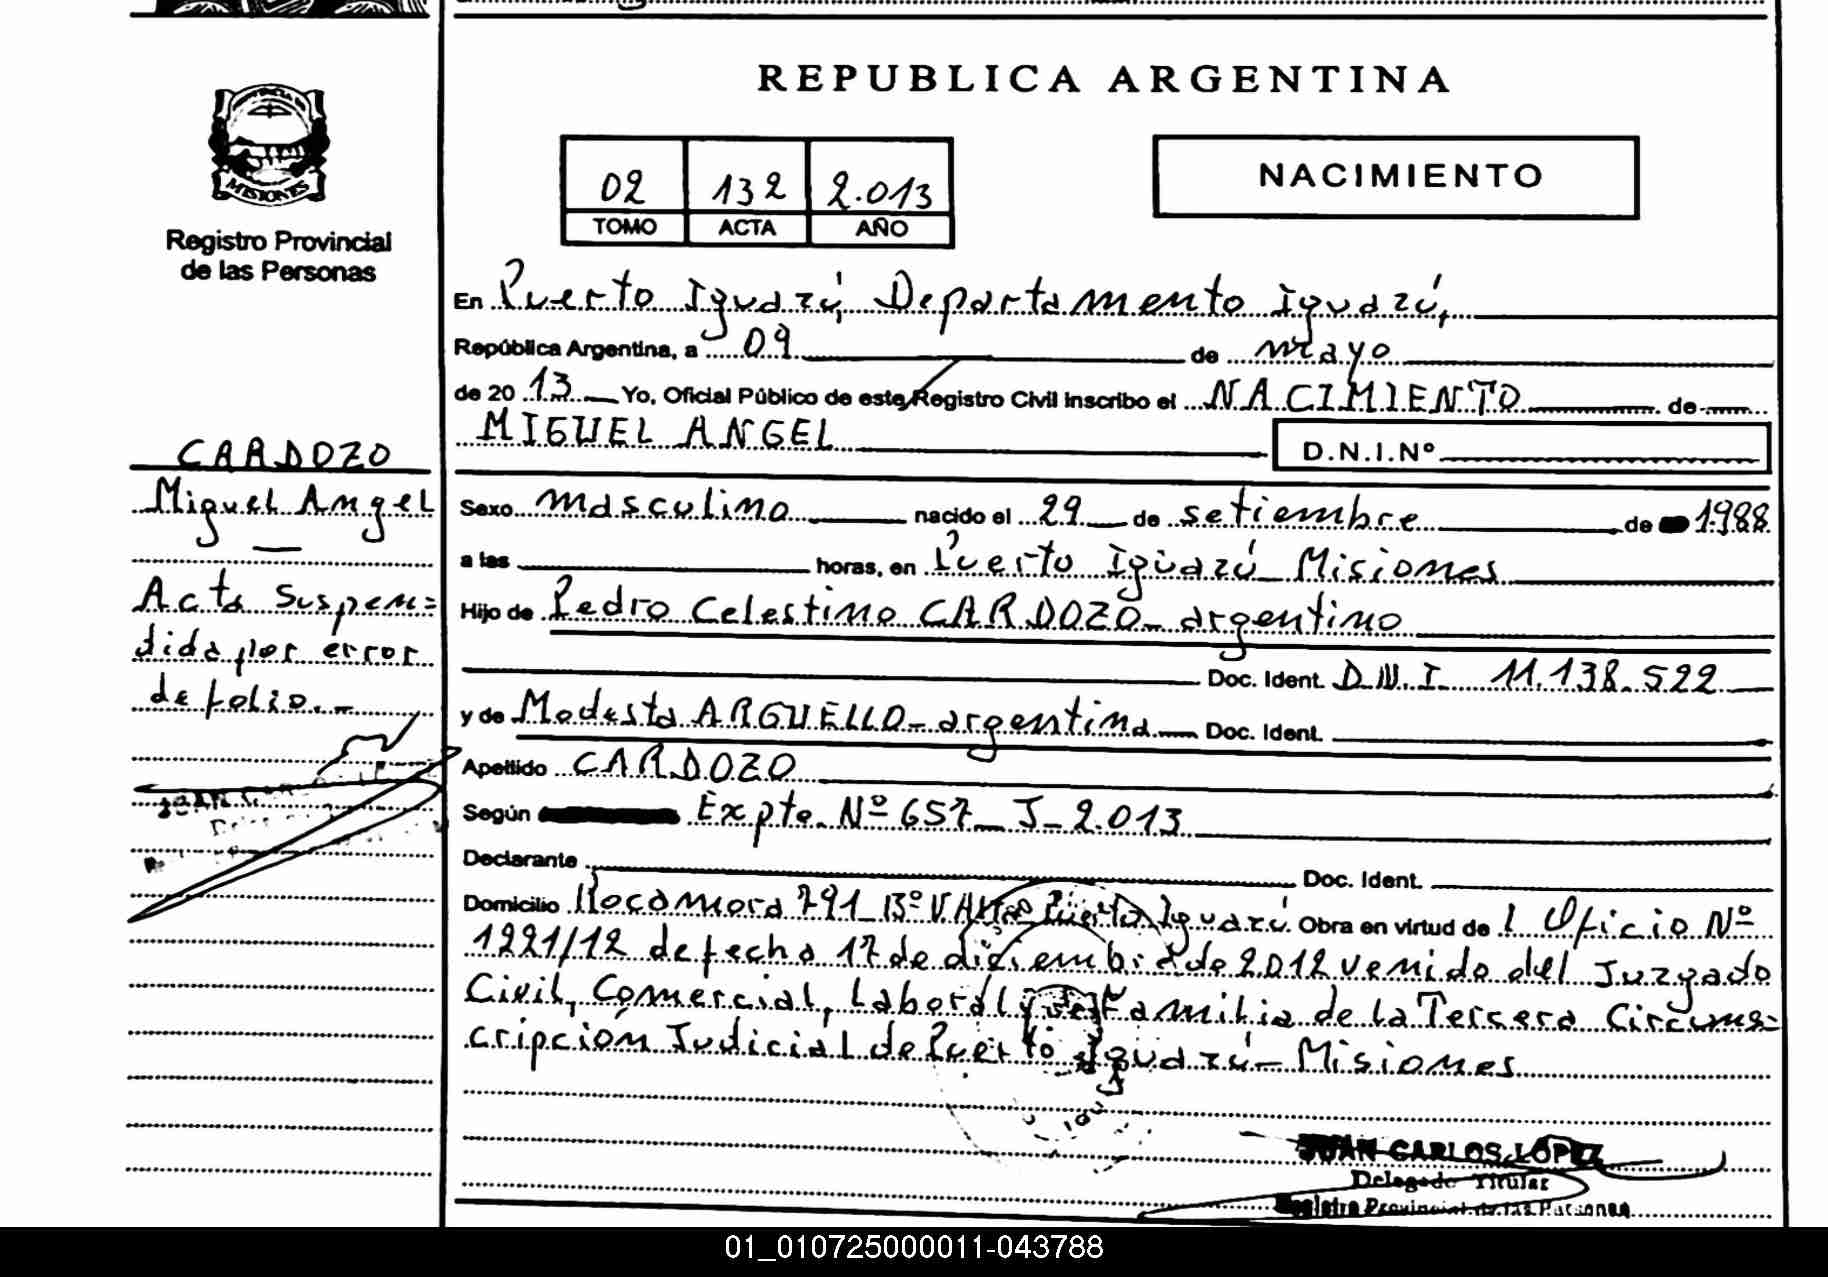 REPUBLICA ARGENTINA
PROVINCIA DE
MISIONES
Registro Provincial
de las Personas
02 132 2.013
TOMO ACTA AÑO
NACIMIENTO
En Puerto Iguazú, Departamento Iguazú,
República Argentina, a 09 de mayo
de 20 13 Yo, Oficial Público de este Registro Civil inscribo el NACIMIENTO de
MIGUEL ANGEL
D.N.I.Nº
CARDOZO
Miguel Angel
Acta Suspen=
dida por error
de folio.-
Sexo masculino nacido el 29 de setiembre de 1988
a las horas, en Puerto Iguazú Misiones
Hijo de Pedro Celestino CARDOZO - argentino
Doc. Ident. D.N.I. 11.138.522
y de Modesta ARGUELLO - argentina Doc. Ident.
Apellido CARDOZO
Según Expte. Nº 657 - J - 2.013
Declarante Doc. Ident.
Domicilio 791 Bº Puerto Iguazú Obra en virtud de l Oficio Nº
1221/12 de fecha 17 de diciembre de 2012 venido del Juzgado
Civil, Comercial, Laboral y de Familia de la Tercera Circuns=
cripción Judicial de Puerto Iguazú - Misiones
JUAN CARLOS LOPEZ
Delegado Titular
Registro Provincial de las Personas
01_010725000011-043788